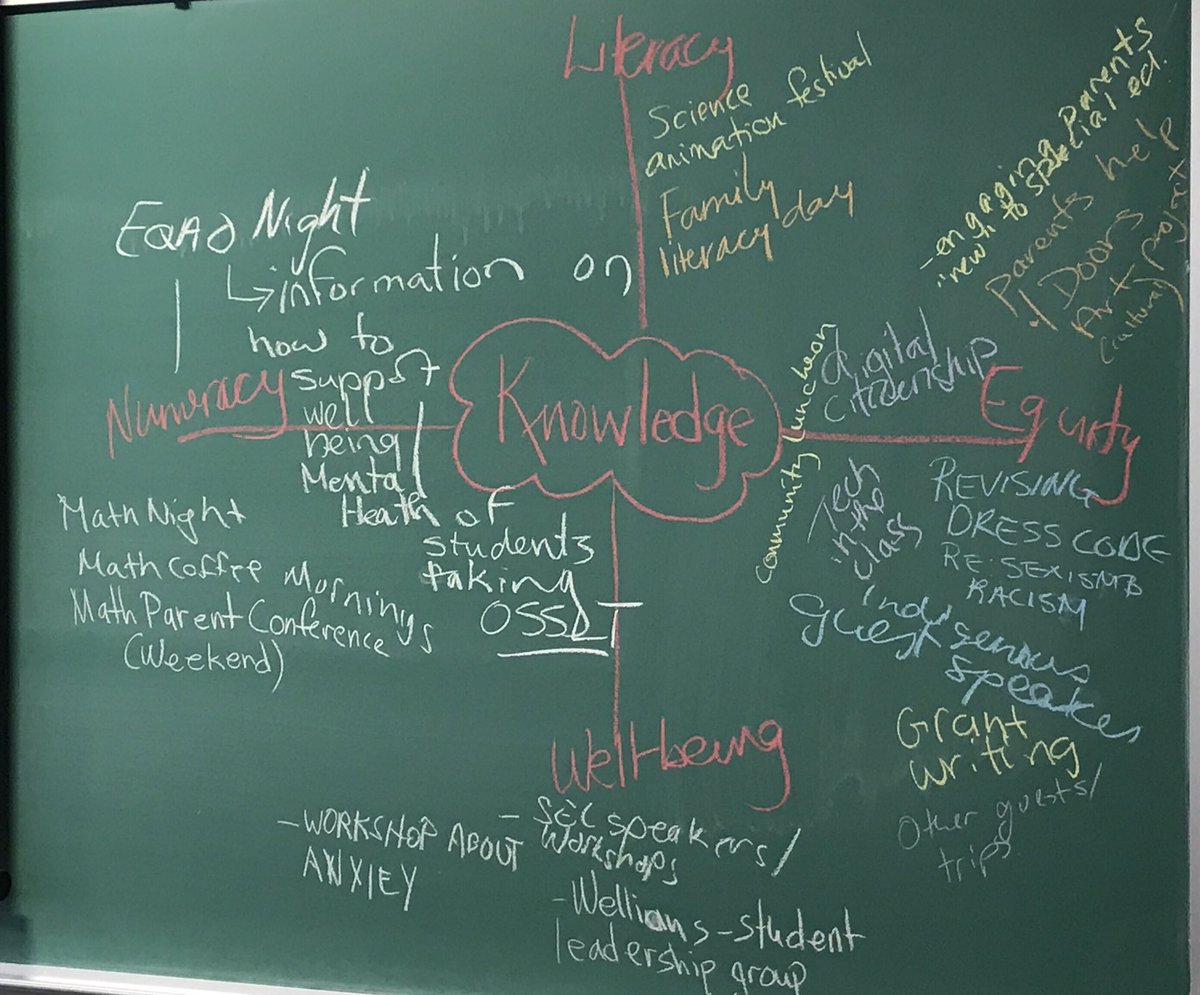 Literacy
Science
animation festival
Family
literacy day
- engaging Parents
"new" to special ed.
Parents help
Doors
Art project
(cultural)
EQAO Night
↳ information on
how to
support
well
being /
Mental
Health of
students
taking
OSSLT
Numeracy
Knowledge
Equity
digital
citizenship
community luncheon
Tech
in the
class
REVISING
DRESS CODE
RE: SEXISM &
RACISM
indigenous
guest speakes
Grant
writing
Other guests/
trips
Math Night
Math Coffee Mornings
Math Parent Conference
(Weekend)
Well-being
- WORKSHOP ABOUT
ANXIEY
- SEL speakers/
Workshops
- Wellians - student
leadership group